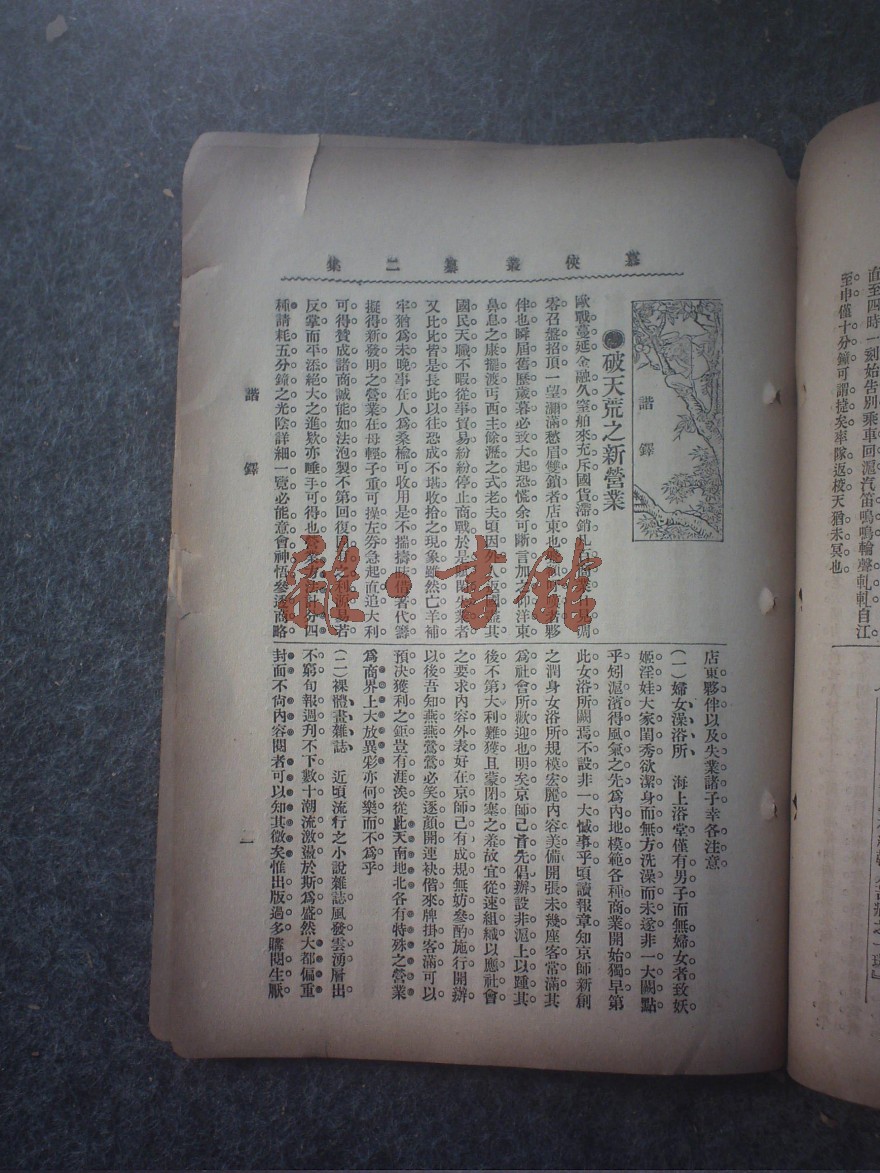 直至四時一刻始告別乘車回滬汽笛嗚嗚輪聲軋軋自江
至申僅十分鐘可謂捷矣車隊返校天猶未冥也。
慕俠叢纂二集
諧鐸
破天荒之新營業
歐戰蔓延。金融久窒。舶來充斥。國貨滯銷。商業日見凋
零。召盤招頂。一望瀰滿。愁眉雙鎖者。店東也。者。夥
伴也。瞬屆舊歷歲暮。必致大起恐慌。余可斷言。加仰洋東
鼻息之康擺渡。丐西主餘瀝之式老夫。頃因外人返國。盡其
國民天職。不暇從事貿易。紛紛停止商戰。於是閑失業者。
又比比皆是。長此以往。恐成不堪收拾之現象。雖然。亡羊補
牢。猶爲未晚。事在人爲。桑榆可收。用是不揣擣昧。借箸代籌。
擬得新發明之營業。在母輕子重。可操左劵。急起直追。大利
可得。贊成諸商。誠能如法泡製。不第回復之利源。易若
反掌。而平添絕大之進欵。亦唾手可得也。營業方法。計分四
種。請耗五分鐘之光陰。詳細一覽。必能意會神悟。參透商略。
店東夥伴。以及失業諸子。幸各注意。
(一)婦女澡浴所 海上浴堂。僅有男子而無婦女者。致妖
姬淫娃。大家閨秀。欲潔身而無方。洗澡而未遂。非一大闕點
乎。矧滬濱得風氣之先。爲內地模範。各種商業。開始獨早。第
此女浴所闕焉不設。非一大憾事乎。頃讀報章。知京師新創
之潤身女浴所。規模宏麗。內容美備。開張未幾。座客常滿。其
爲社會所歡迎也明矣。京師已首先倡辦。設非滬上以踵其
後。不第大利難獲。且蒙閉塞之羞。故宜從速組織。以應社會
之要求。內容外表。好在京師已有成規。無妨參酌施行。開辦
以後。吾知燕燕鶯鶯。必笑逐顏開。連袂偕來。牌掛客滿。可以
預決。獲利之鉅。豈有涯涘。從此天南地北。各有特殊之營業。
爲商界上大放異彩。亦何樂而不爲乎。
(二)裸體畫雜誌 近頃流行之小說雜誌。風發雲湧。層出
不窮。旬報週刊。不下數十。潮流激盪。於斯爲盛。然大都偏重
封面。不尙內容。閱者可以知其微矣。惟出版過多。購閱生厭。
諧鐸
一
雜·書館